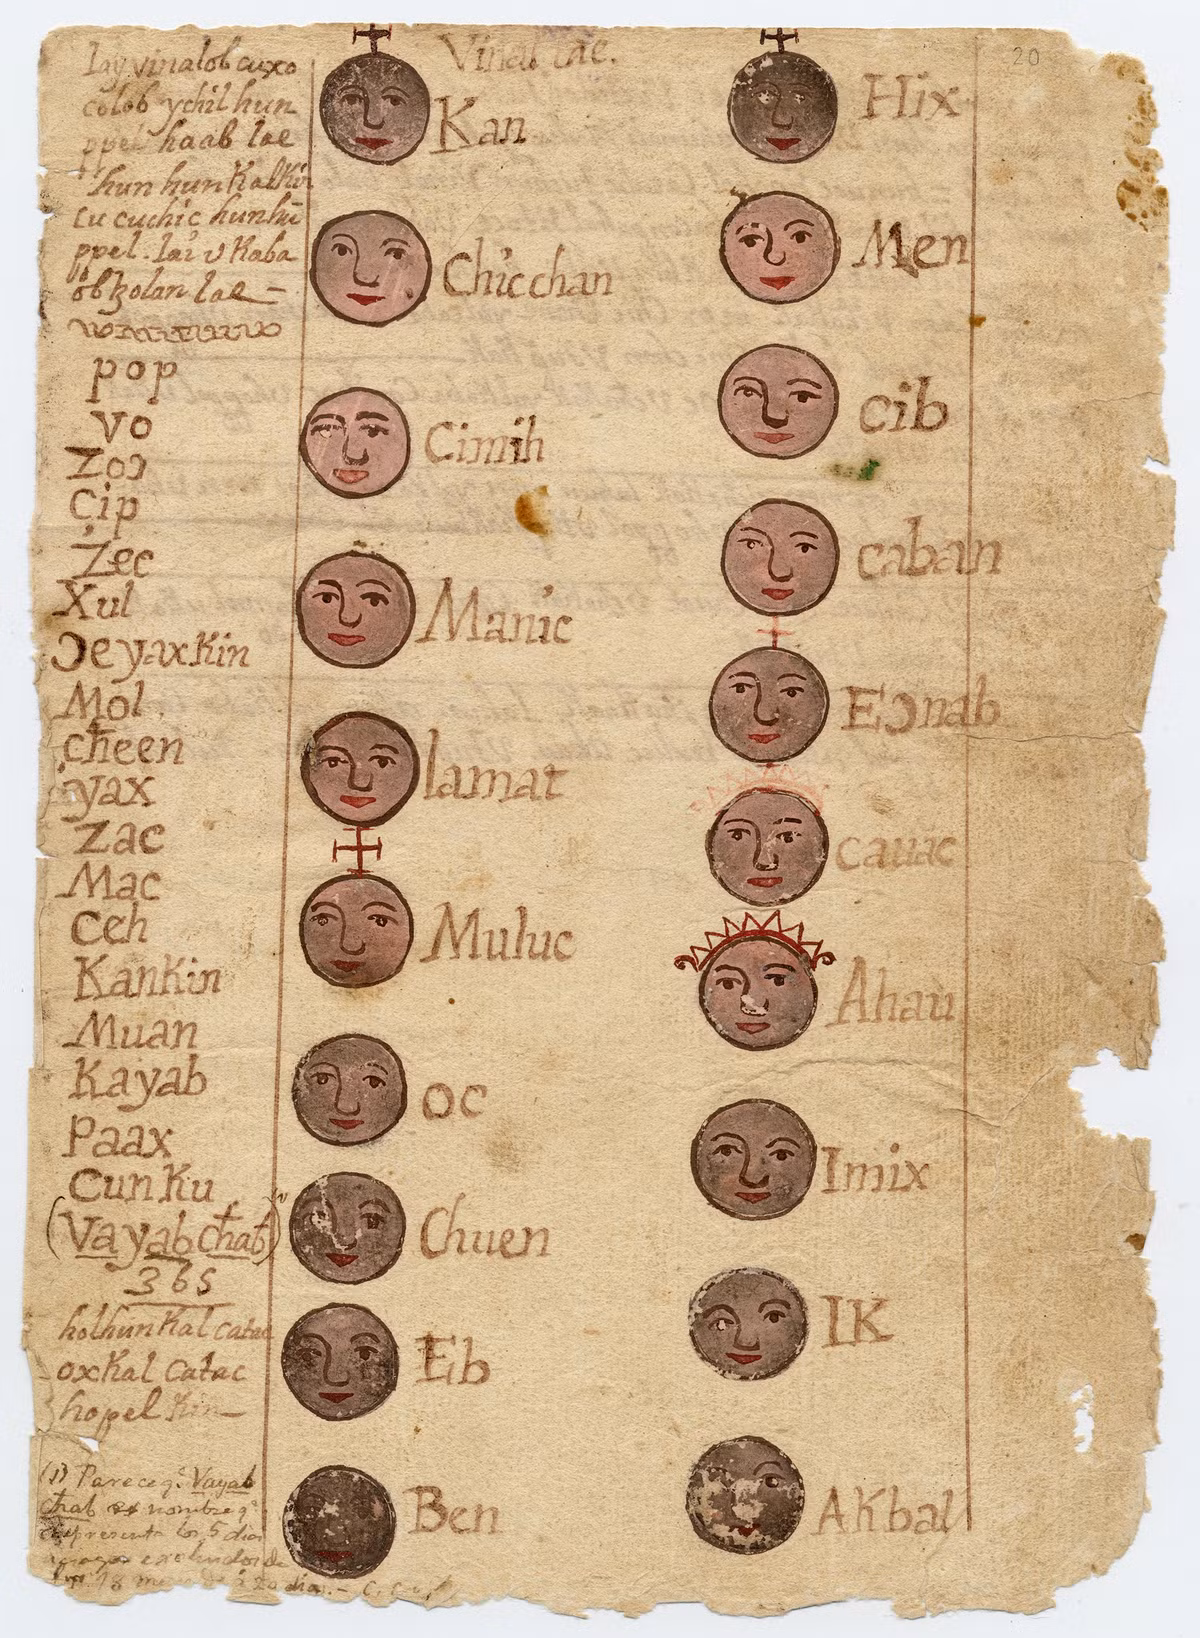 Lay vinalob cuxo
colob ychil hun
ppel haab lae
hun hunkalkin
cu cuchic hunhū
ppel. lai v Kaba
ob tzolan lae —
pop
vo
Zoɔ
Cip
Zec
Xul
Ɔeyaxkin
Mol.
cħeen
yax
Zac
Mac
Ceh
Kankin
Muan
Kayab
Paax
CunKu
(Vayab cħab)
365
holhunkal catac
oxkal catac
hopel kin—
(1) Parece q.e Vayab
cħab es nombre q.e
representa los 5 dias
de
18 meses de á 20 dias.—
Vinal lae.
Kan
Chicchan
Cimih
Manic
lamat
Muluc
oc
Chuen
Eb
Ben
20
Hix
Men
cib
caban
Eɔnab
cauac
Ahau
Imix
IK
AKbal